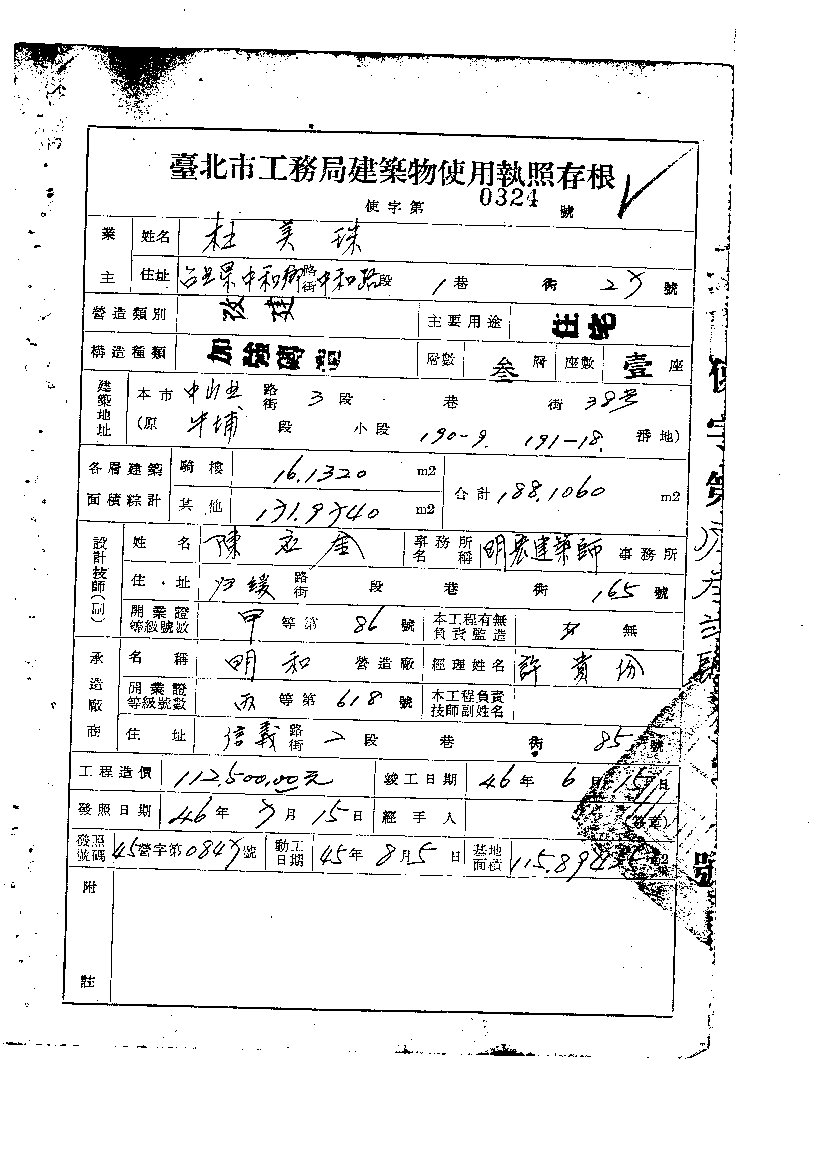 臺北市工務局建築物使用執照存根
使字第 0324 號
業主 姓名 杜美珠
住址 台北県中和鄉路街中和路段 1巷 街 27 號
營造類別 改建 主要用途 住宅
構造種類 加強磚造 層數 叁層 座數 壹座
建築地址 本市 中山北 路街 3段 巷 街 38号
(原 牛埔 段 小段 190-9. 191-18. 番地)
各層建築面積綜計 騎樓 16.1320 m2 合計 188.1060 m2
其他 171.9740 m2
設計技師(副) 姓名 陳 事務所名稱 明宏建築師 事務所
住·址 路街 段 巷 街 165 號
開業證等級號數 甲 等第 86 號 本工程有無負責監造 有 無
承造廠商 名稱 明和 營造廠 經理姓名 許貴份
開業證等級號數 丙 等第 618 號 本工程負責技師副姓名
住址 信義 路街 二段 巷 街 85 號
工程造價 112,500.00元 竣工日期 46年 6月 15日
發照日期 46年 7月 15日 經手人 (簽章)
發照號碼 45營字第0847號 動工日期 45年 8月5日 基地面積 115.89 m2
附註
使字第 號